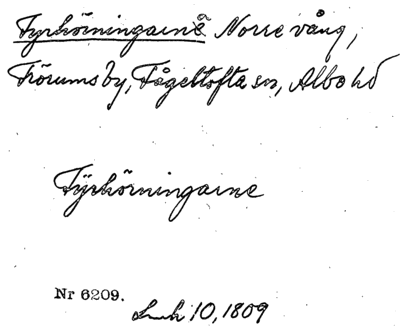 Fyrhörningarne Norre vång,
Frörums by, Fågeltofta sn, Albo hd
Fyrhörningarne
Nr 6209.
10, 1809